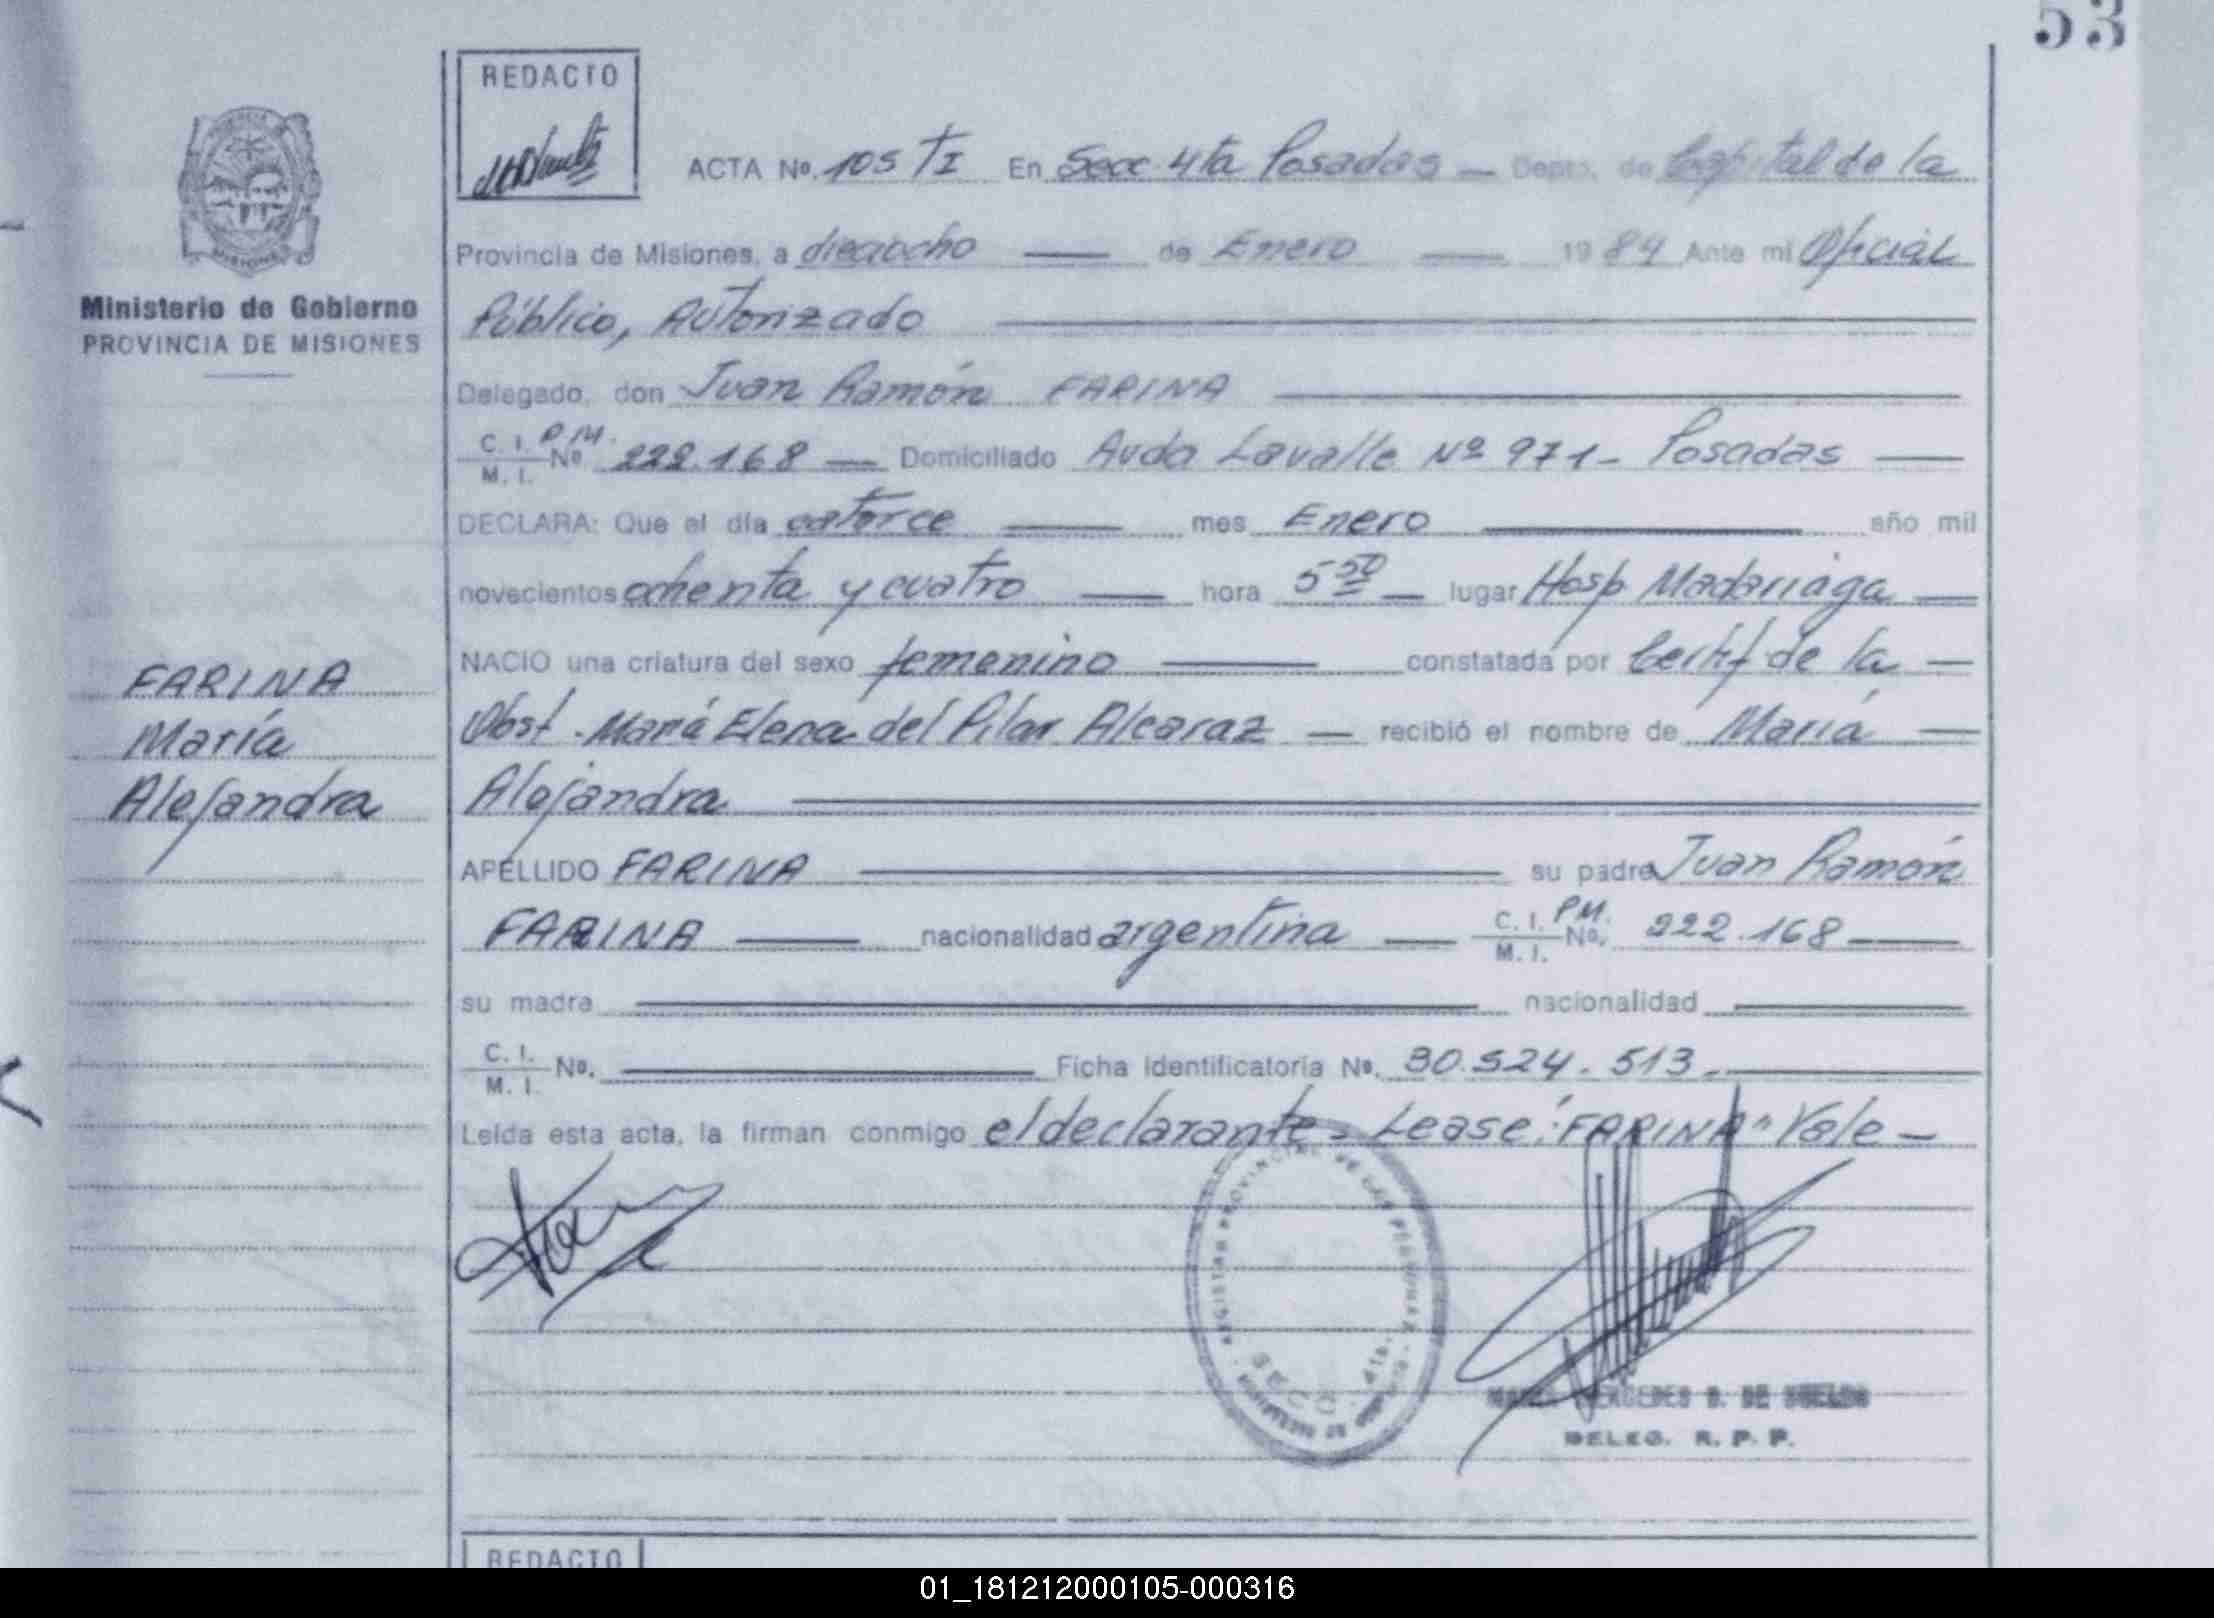 53
REDACTO
ACTA Nº. 105 TI En Secc. 4ta Posadas — Depto. de Capital de la
Provincia de Misiones, a dieciocho — de Enero — 1984 Ante mi Oficial
Público, Autorizado
Ministerio de Gobierno
PROVINCIA DE MISIONES
Delegado, don Juan Ramón FARINA
C. I. P.M.
M. I. Nº 222.168 — Domiciliado Avda Lavalle Nº 971 - Posadas —
DECLARA: Que el día catorce — mes Enero — año mil
novecientos ochenta y cuatro — hora 5 50 — lugar Hosp Madariaga —
NACIO una criatura del sexo femenino — constatada por Certif de la —
Obst. María Elena del Pilar Alcaraz — recibió el nombre de María —
Alejandra
FARINA
María
Alejandra
APELLIDO FARINA — su padre Juan Ramón
FARINA — nacionalidad argentina — C. I. P.M.
M. I. Nº. 222.168 —
su madre — nacionalidad —
C. I.
M. I. Nº. — Ficha Identificatoria Nº. 30.524.513.-
Leída esta acta, la firman conmigo el declarante - Lease: "FARINA" Vale —
REGISTRO PROVINCIAL DE LAS PERSONAS
SECC. 4ta.
MERCEDES B. DE
DELEG. R. P. P.
REDACTO
01_181212000105-000316